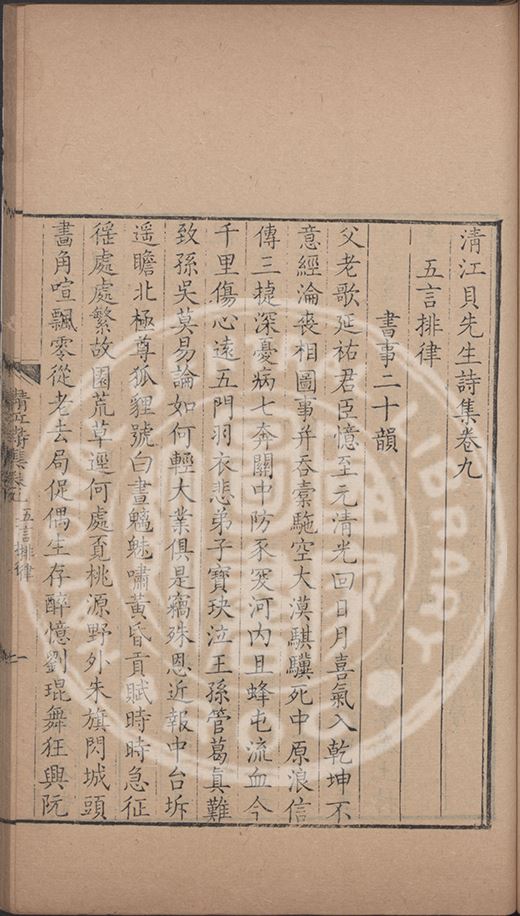 清江貝先生詩集卷九
五言排律
書事二十韻
父老歌延祐君臣憶至元清光回日月喜氣入乾坤不
意經淪喪相圖事并吞槖駞空大漠騏驥死中原浪信
傳三捷深憂病七奔關中防豕突河内且蜂屯流血今
千里傷心遠五門羽衣悲弟子寶玦泣王孫管葛真難
致孫吳莫易論如何輕大業俱是竊殊恩近報中台坼
遥瞻北極尊狐狸號白晝魑魅嘯黃昏貢賦時時急征
徭處處繁故園荒草遲何處覓桃源野外朱旗閃城頭
畫角喧飄零從老去局促偶生存醉憶劉琨舞狂興阮
清江詩集
五言排律
一